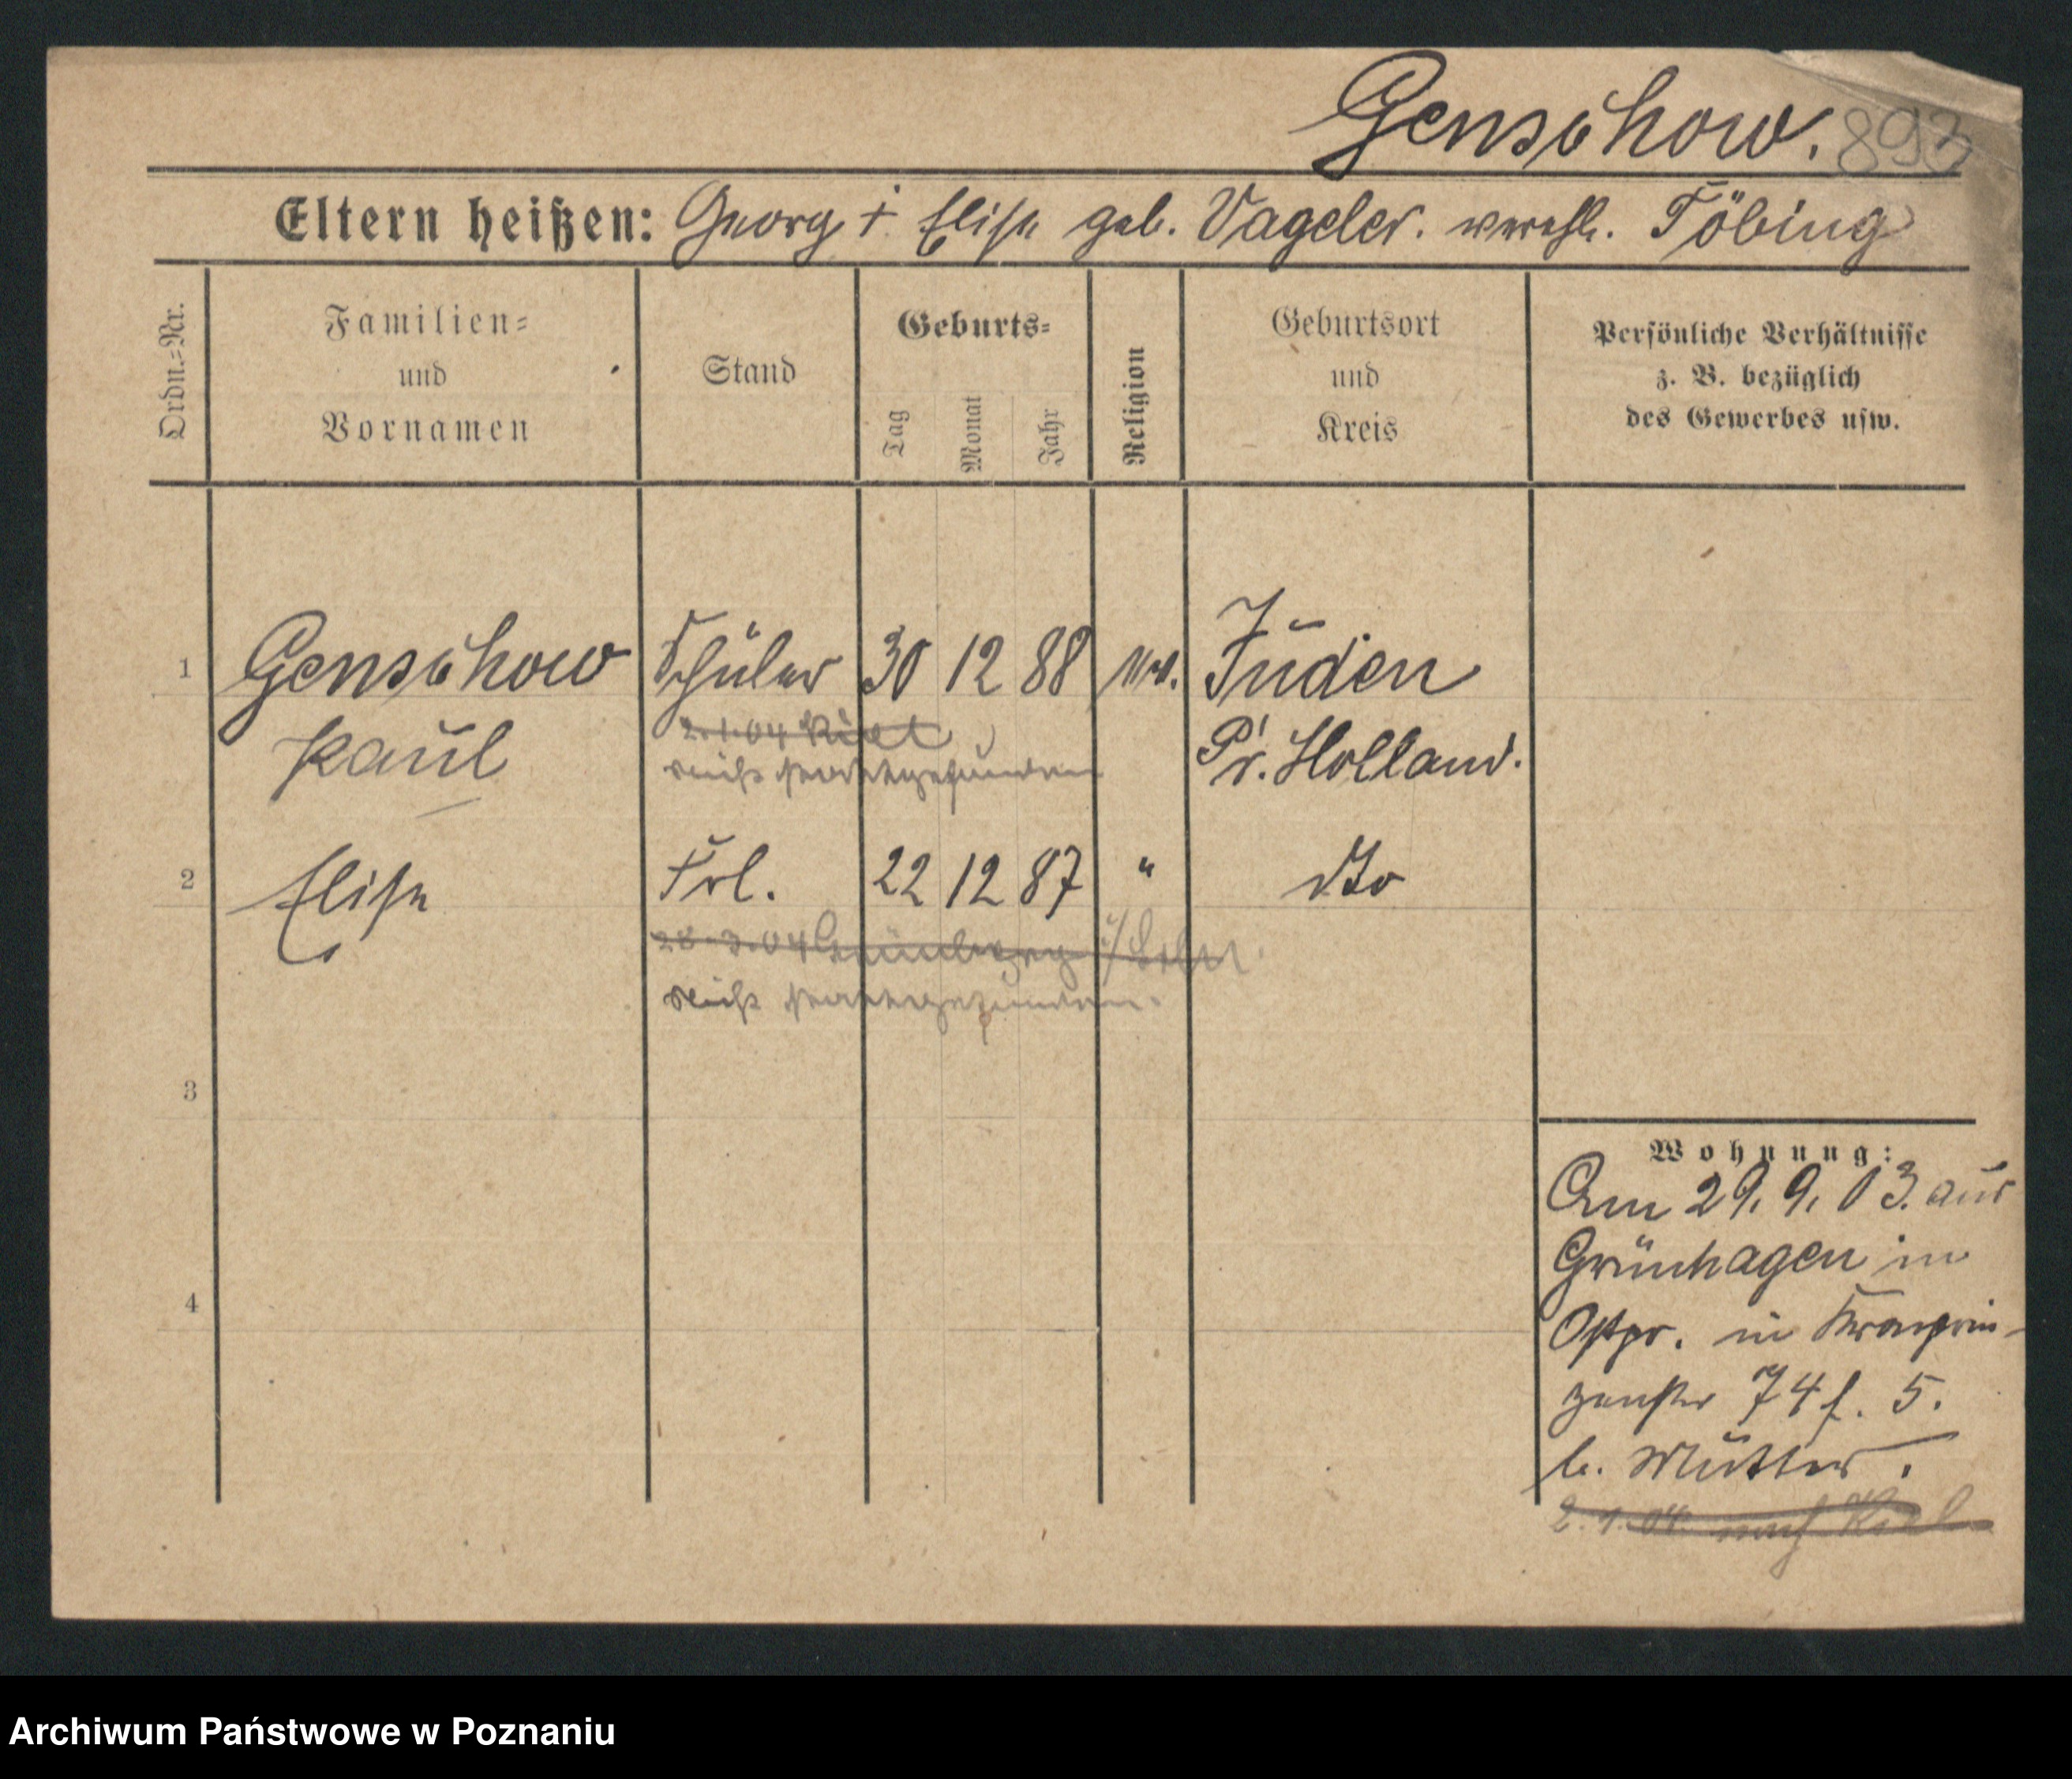 Genschow. 893
Eltern heißen: Georg † Elise geb. Vageler. verehl. Töbing
Ordn.=Nr.
Familien=
und
Vornamen
Stand
Geburts=
Tag
Monat
Jahr
Religion
Geburtsort
und
Kreis
Persönliche Verhältnisse
z. B. bezüglich
des Gewerbes usw.
1 Genschow Schüler 30 12 88 ev. Jüden
Paul Pr. Holland.
2. 1. 04 Kiel
nicht stattgefunden
2 Elise Frl. 22 12 87 " dto
28. 3. 04
nicht stattgefunden.
3
4
Wohnung:
Am 29. 9. 03. aus
Grünhagen in
Ostpr. in Kronprin-
zenstr 74 f. 5.
b. Mutter.
2. 1. 04. nach Kiel
Archiwum Państwowe w Poznaniu